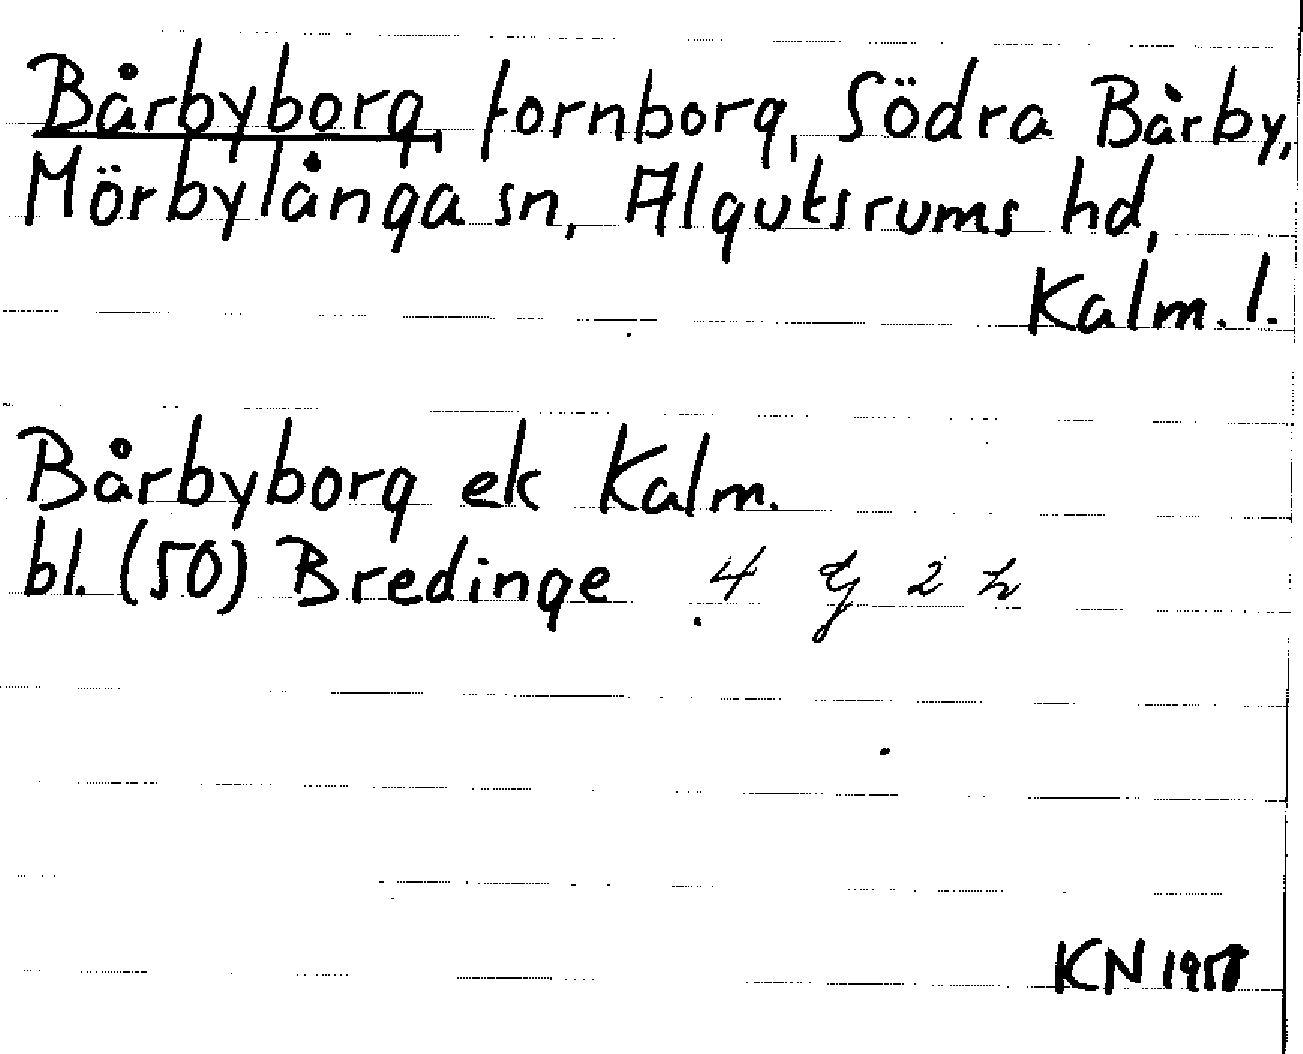 Bårbyborg, fornborg, Södra Bårby,
Mörbylånga sn, Algutsrums hd,
Kalm. l.
Bårbyborg ek Kalm.
bl. (50) Bredinge 4 g 2 h
KN